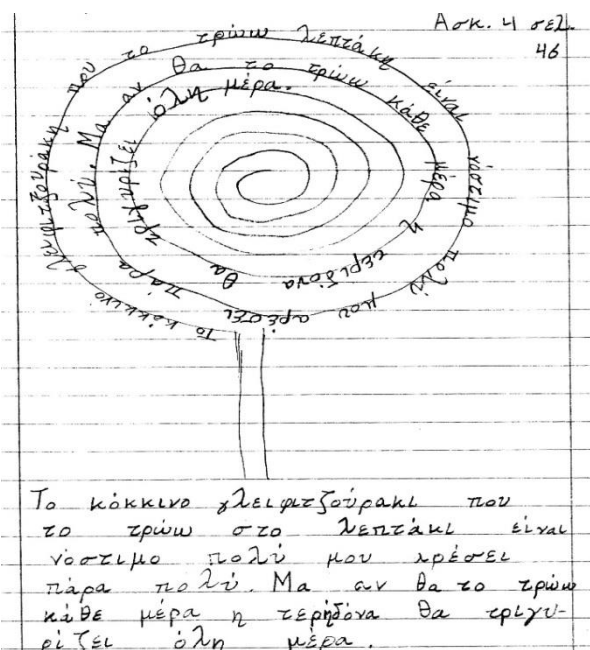 Ασκ. 4 σελ.
46
Το κόκκινο γλειφιτζουράκη που το τρώω λεπτάκη είναι νόστιμο πολύ μου αρέσει πάρα πολύ. Μα αν θα το τρώω κάθε μέρα η τεριδόνα θα τριγυρίζει όλη μέρα.
Το κόκκινο γλειφιτζούρακι που
το τρώω στο λεπτάκι είναι
νόστιμο πολύ μου αρέσει
πάρα πολύ. Μα αν θα το τρώω
κάθε μέρα η τερηδόνα θα τριγυ-
ρίζει όλη μέρα.